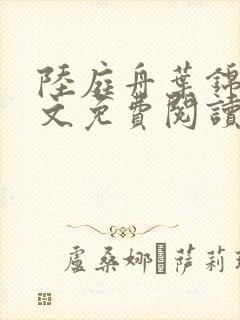 陸庭舟葉錦
文免費閱讀
盧桑娜·萨莉